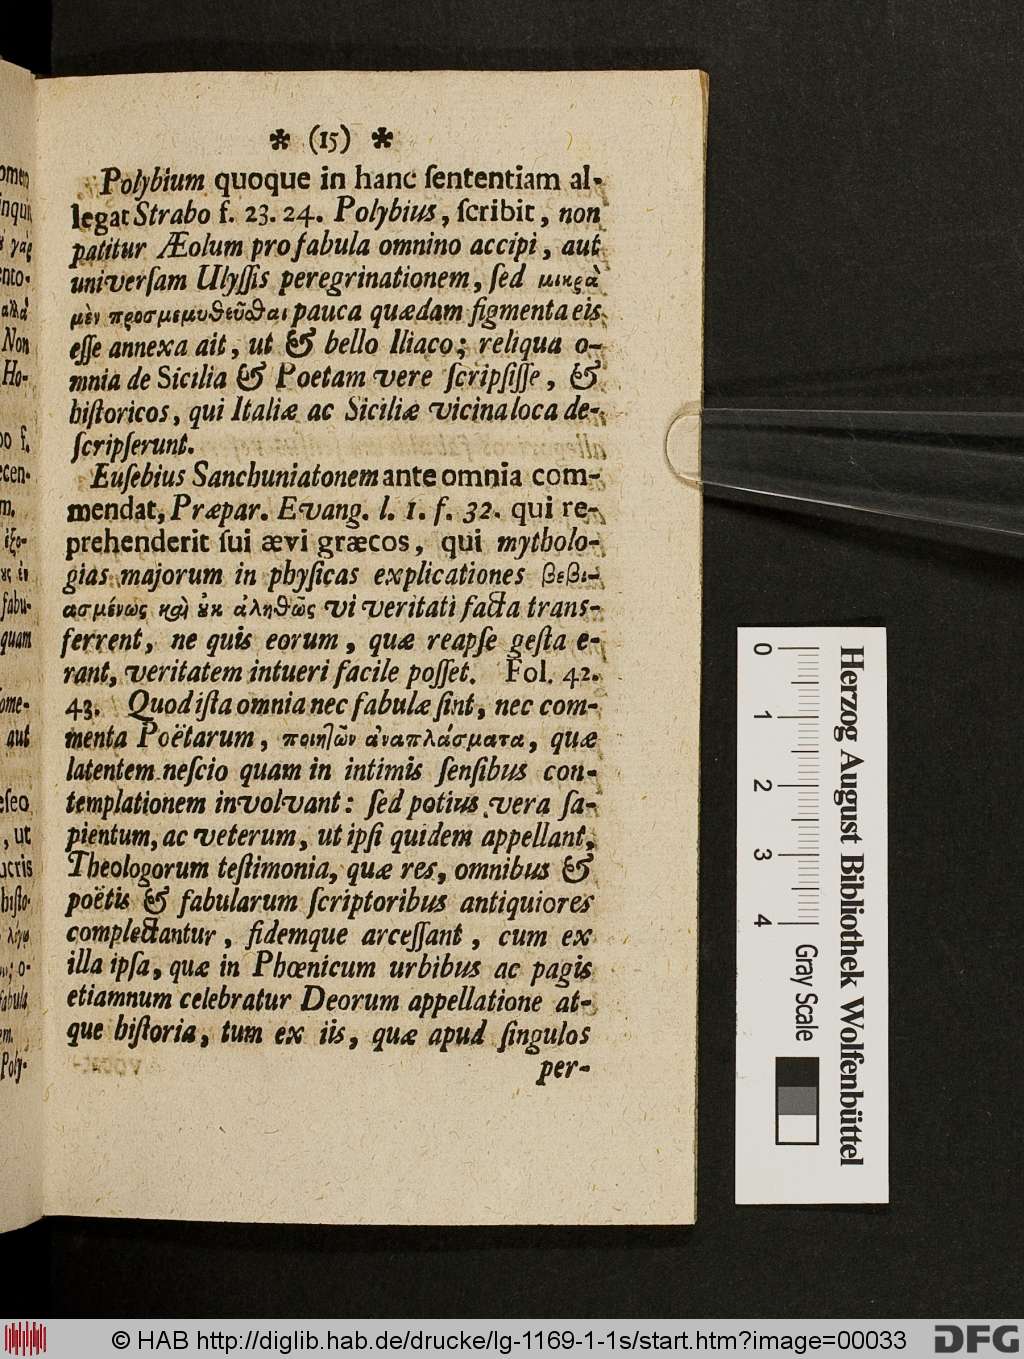 ✽ (15) ✽
Polybium quoque in hanc ſententiam al-
legat Strabo f. 23. 24. Polybius, ſcribit, non
patitur Æolum pro fabula omnino accipi, aut
univerſam Ulyſſis peregrinationem, ſed μικρὰ
μὲν προσμεμυθεῦσθαι pauca quædam figmenta eis
eſſe annexa ait, ut & bello Iliaco; reliqua o-
mnia de Sicilia & Poetam vere ſcripſiſſe, &
hiſtoricos, qui Italiæ ac Siciliæ vicina loca de-
ſcripſerunt.
Euſebius Sanchuniatonem ante omnia com-
mendat, Præpar. Evang. l. 1. f. 32. qui re-
prehenderit ſui ævi græcos, qui mytholo-
gias majorum in phyſicas explicationes βεβι-
ασμένως καὶ ȣκ ἀληθῶς vi veritati facta trans-
ferrent, ne quis eorum, quæ reapſe geſta e-
rant, veritatem intueri facile poſſet. Fol. 42.
43. Quod iſta omnia nec fabulæ ſint, nec com-
menta Poëtarum, ποιητῶν ἀναπλάσματα, quæ
latentem neſcio quam in intimis ſenſibus con-
templationem involvant: ſed potius vera ſa-
pientum, ac veterum, ut ipſi quidem appellant,
Theologorum teſtimonia, quæ res, omnibus &
poëtis & fabularum ſcriptoribus antiquiores
complectantur, fidemque arceſſant, cum ex
illa ipſa, quæ in Phœnicum urbibus ac pagis
etiamnum celebratur Deorum appellatione at-
que hiſtoria, tum ex iis, quæ apud ſingulos
per-
Herzog August Bibliothek Wolfenbüttel
0 1 2 3 4 Gray Scale
© HAB http://diglib.hab.de/drucke/lg-1169-1-1s/start.htm?image=00033
DFG